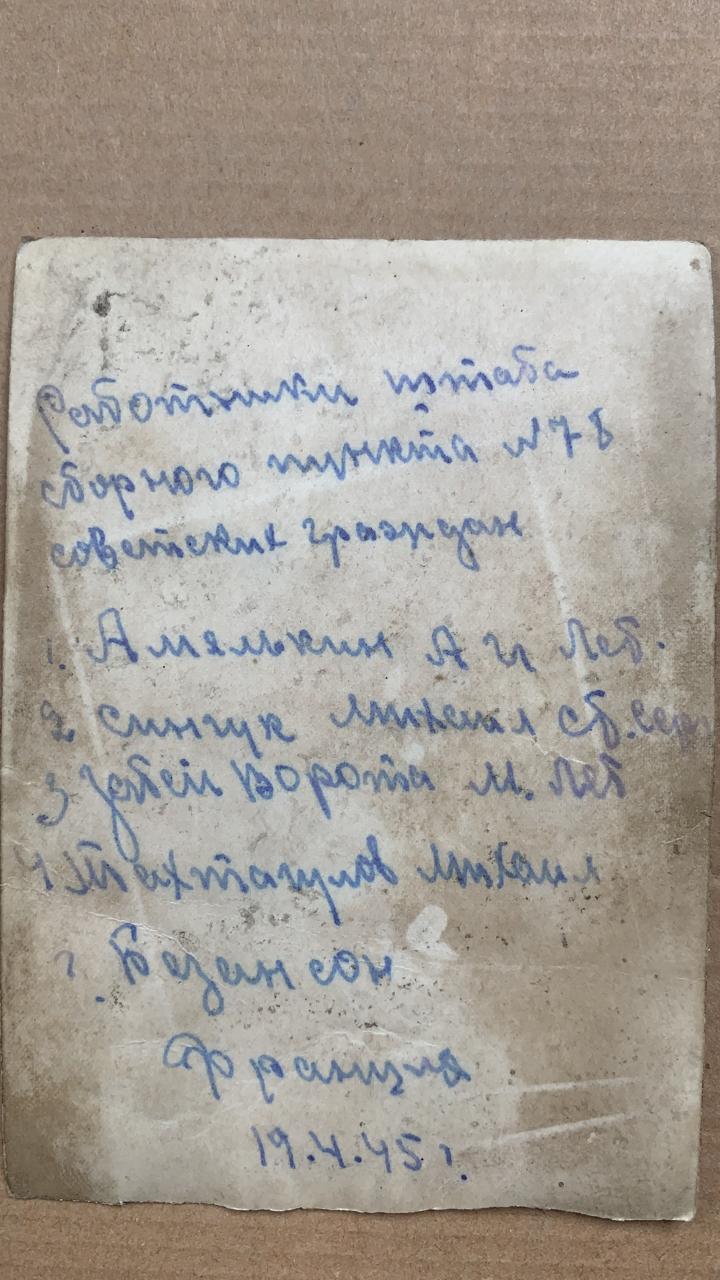 Работники штаба
сборного пункта №78
советских граждан
1. Амялькин А И Лет.
2 синчук Михаил ст. сер
3 Затей Ворота М. Лет
4 Тахтагулов Михаил
г. Безансон
Франция
19.4.45 г.